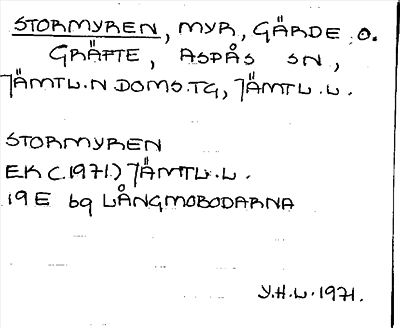 STORMYREN, MYR, GÄRDE O.
GRÄFTE, ASPÅS SN,
JÄMTL.N DOMS.TG, JÄMTL.L.
STORMYREN
EK (1971) JÄMTL.L.
19E 6q LÅNGMOBODARNA
Y.H.L. 1971.